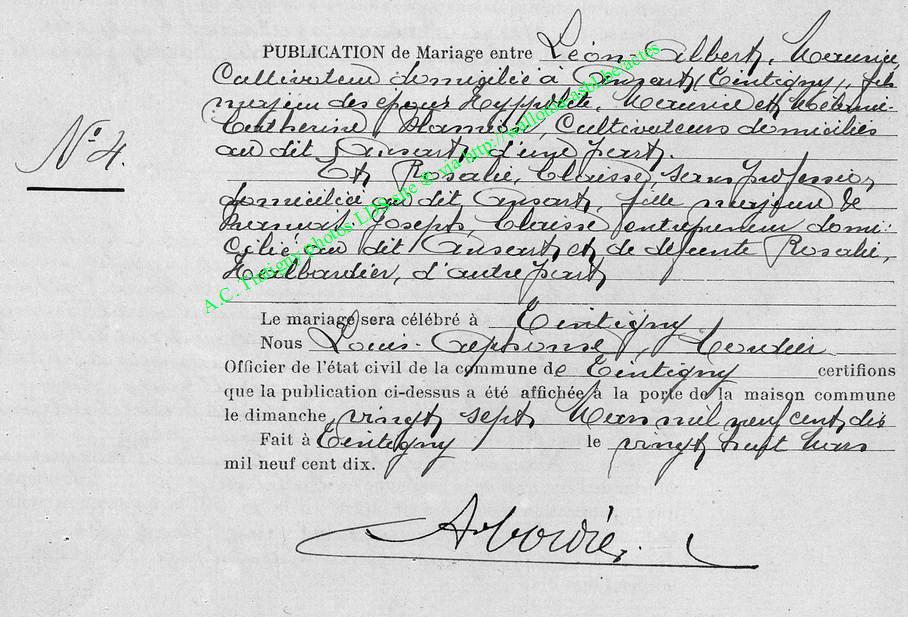 PUBLICATION de Mariage entre Léon Albert, Maurice,
Cultivateur domicilié à Ansart, (Tintigny), fils
majeur des époux Hyppolite, Maurice et
Catherine Cultivateurs domiciliés
au dit Ansart, d'une part,
N° 4.
Et, Rosalie, Claisse, sans profession
domiciliée au dit Ansart, fille majeure de
Joseph, Claisse entrepreneur domi-
cilié au dit Ansart, et de défunte Rosalie,
d'autre part,
Le mariage sera célébré à Tintigny
Nous Louis-Alphonse
Officier de l'état civil de la commune de Tintigny certifions
que la publication ci-dessus a été affichée à la porte de la maison commune
le dimanche vingt sept Mars mil neuf cent dix
Fait à Tintigny le vingt huit Mars
mil neuf cent dix.
A.C. Tintigny photos LDS site ® via http://wallonia.asbl.be/actes